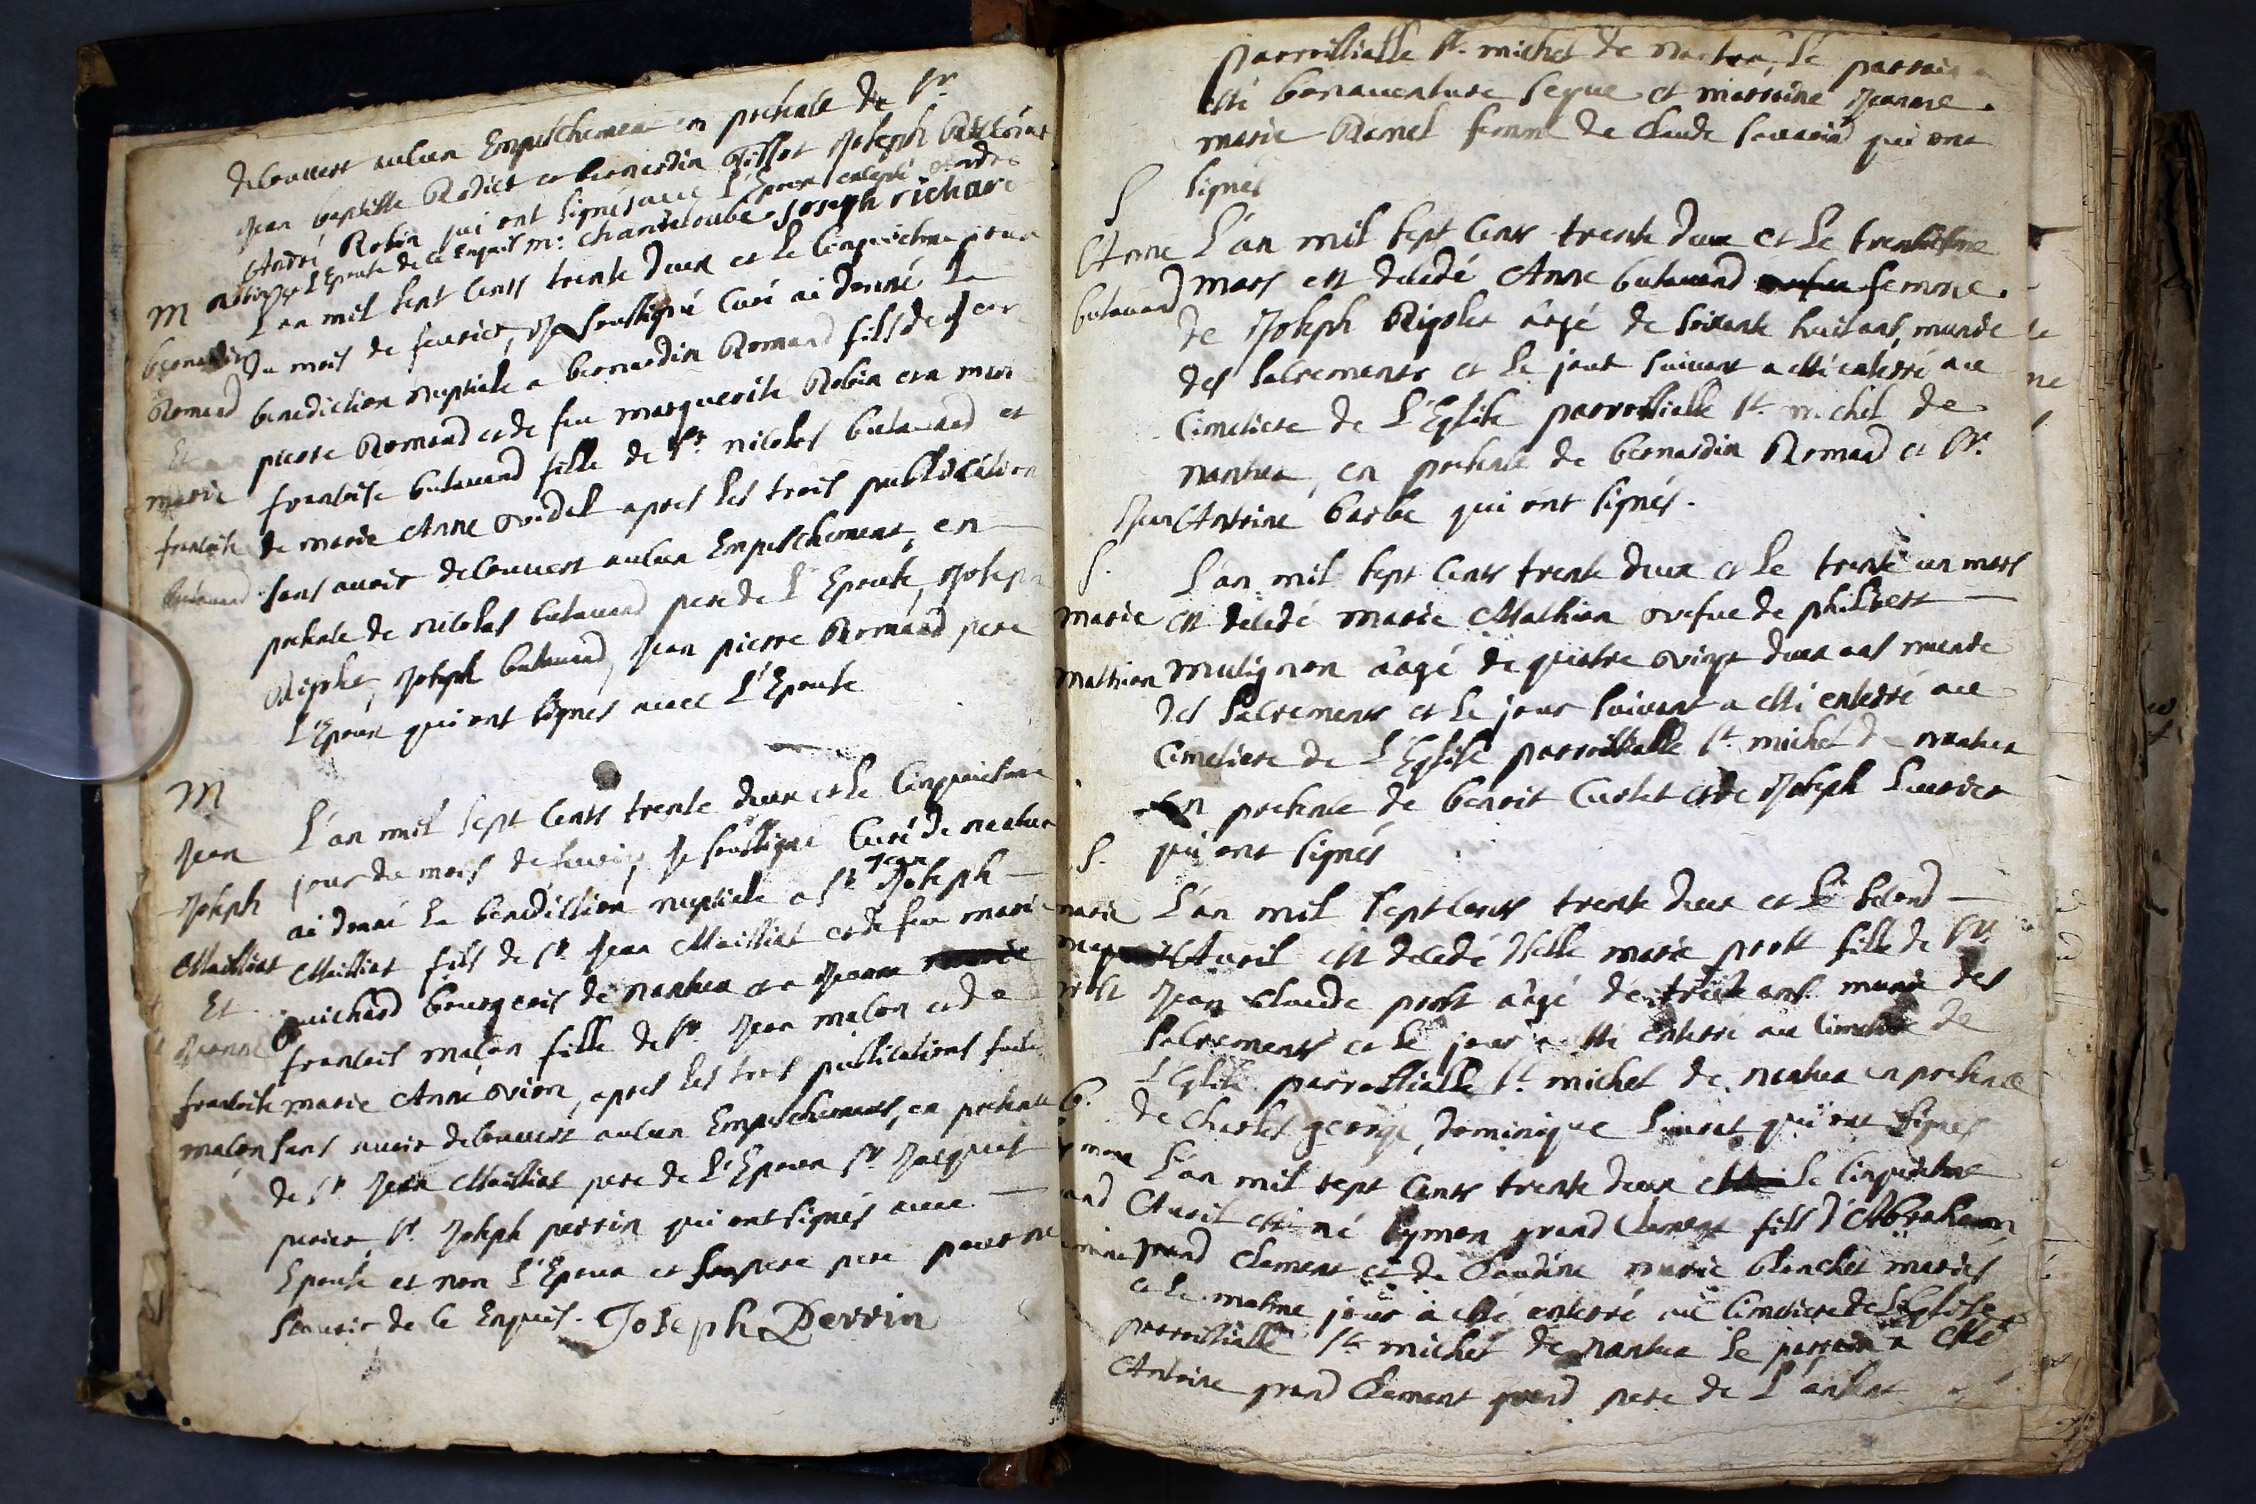 decouvert aulcun Empeschement en presence de Sr.
Jean baptiste Rodict et bernardin Joseph
André Robin qui ont signés avec L'Epoux André
Robin L'Epouse de ce Enquis m. Chanteloube Joseph richard
M
L'an mil sept Cents trente deux et le Cinquiesme jour
bernardin du mois de feurier, Je soussigné Curé ai donné La
Romand benediction nuptiale a bernardin Romand fils de Jean
Et pierre Romand et de feu marguerite Robin et a marie
marie francoise butavand fille de Sr. nicolas butavand et
francoise de marie Anne apres les trois publications
butavand sans avoir decouvert aulcun Empeschement, en
presence de nicolas butavand pere de L'Epouse, Joseph
Rigolet, Joseph butavand, Jean pierre Romand pere
L'Epoux qui ont signes avec L'Epouse
M
Jean L'an mil sept Cents trente deux et le Cinquiesme
Joseph jour du mois de feurier, Je soussigné Curé de nantua
ai donné La benediction nuptiale a Sr. Jean Joseph
Maillat Maillat fils de Sr. Jean Maillat et de feu marie
Et guichard bourgeois de nantua et a Jeanne
Jeanne francois malon fille de Sr. Jean malon et de
francoise marie Anne vion, apres les trois publications faites
malon sans avoir decouvert aulcun Empeschement, en presence
de Sr. Jean Maillat pere de L'Epoux Sr. Jacques
perier, Sr. Joseph perrin qui ont signés avec
Epouse et non L'Epoux et pere pour ne
Scavoir de Ce Enquis. Joseph Perrin
parroissialle St. michel de nantua, Le parrain a
esté bonaventure Segue et marraine Jeanne
marie Ramel femme de Claude Savarin qui ont
signés
S
Anne L'an mil sept Cents trente deux et Le trentiesme
butavand mars est decedé Anne butavand femme
de Joseph Rigolet aagé de soixante huit ans, munie
des Sacrements et Le jour suivant a esté enterré au
Cimetiere de L'Eglise parroissialle St. michel de
nantua, en presence de bernardin Romand et Sr.
Jean Antoine barbe qui ont signés.
S.
L'an mil sept Cents trente deux et Le trente un mars
marie est decedé marie Mathion vefue de philbert
mathion mulignon aagé de quatre vingt deux ans munie
des Sacrements et Le jour suivant a esté enterré au
Cimetiere de L'Eglise parroissialle St. michel de nantua
En presence de benoit Curlet et de Joseph
qui ont signés
S.
marie L'an mil sept Cents trente deux et Le second
Avril est decedé dlle marie prost fille de Sr.
prost Jean Claude prost aagé de ans munie des
Sacrements et Le jour a esté enterré au Cimetiere de
L'Eglise parroissialle St. michel de nantua en presence
B. de Charles george, dominique qui ont signes
L'an mil sept Cents trente deux Le Cinquiesme
Avril est né symon grand Clement fils d'Abraham
grand Clement et de Claudine marie blanchet mariés
et Le mesme jour a esté enterré au Cimetiere de L'Eglise
parroissialle St. michel de nantua Le parrain a esté
Antoine grand Clement grand pere de L'enfant